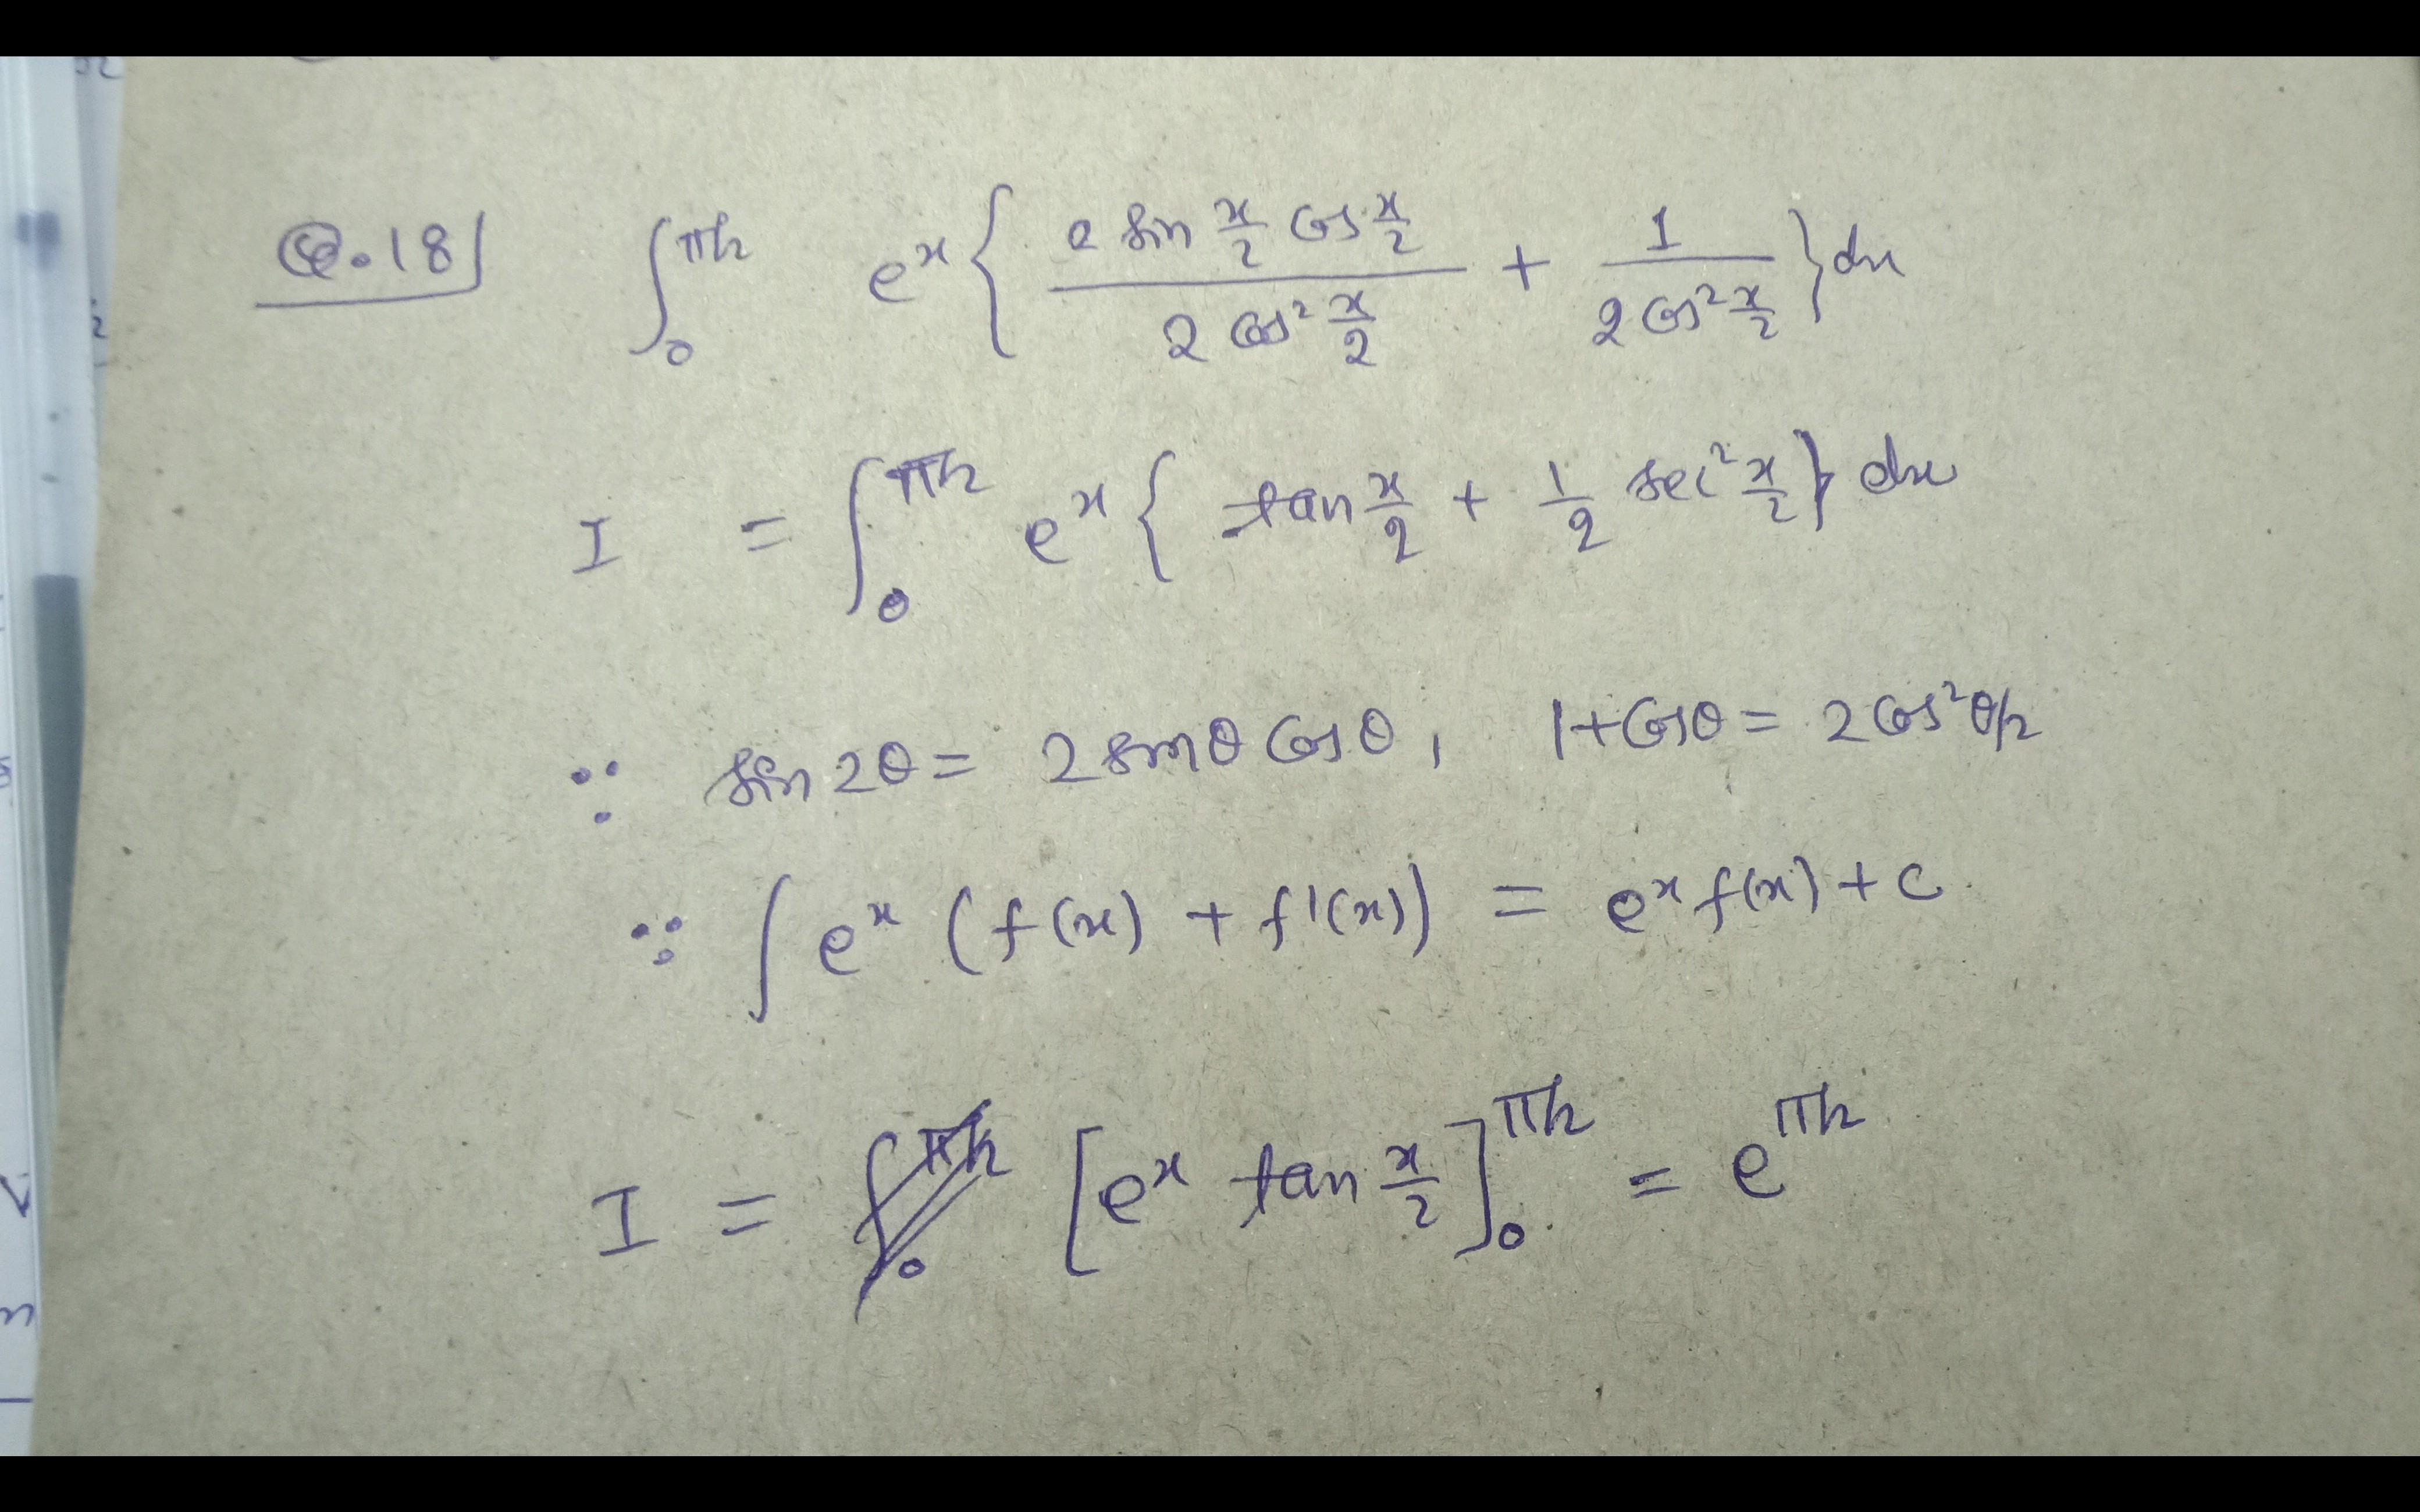 Q.18) ∫₀^{π/2} e^x { (2 sin x/2 cos x/2)/(2 cos² x/2) + 1/(2 cos² x/2) } dx
I = ∫₀^{π/2} e^x { tan x/2 + 1/2 sec² x/2 } dx
∵ sin 2θ = 2 sinθ cosθ, 1+cosθ = 2cos²θ/2
∵ ∫ e^x (f(x) + f'(x)) = e^x f(x) + c
I = [e^x tan x/2]₀^{π/2} = e^{π/2}